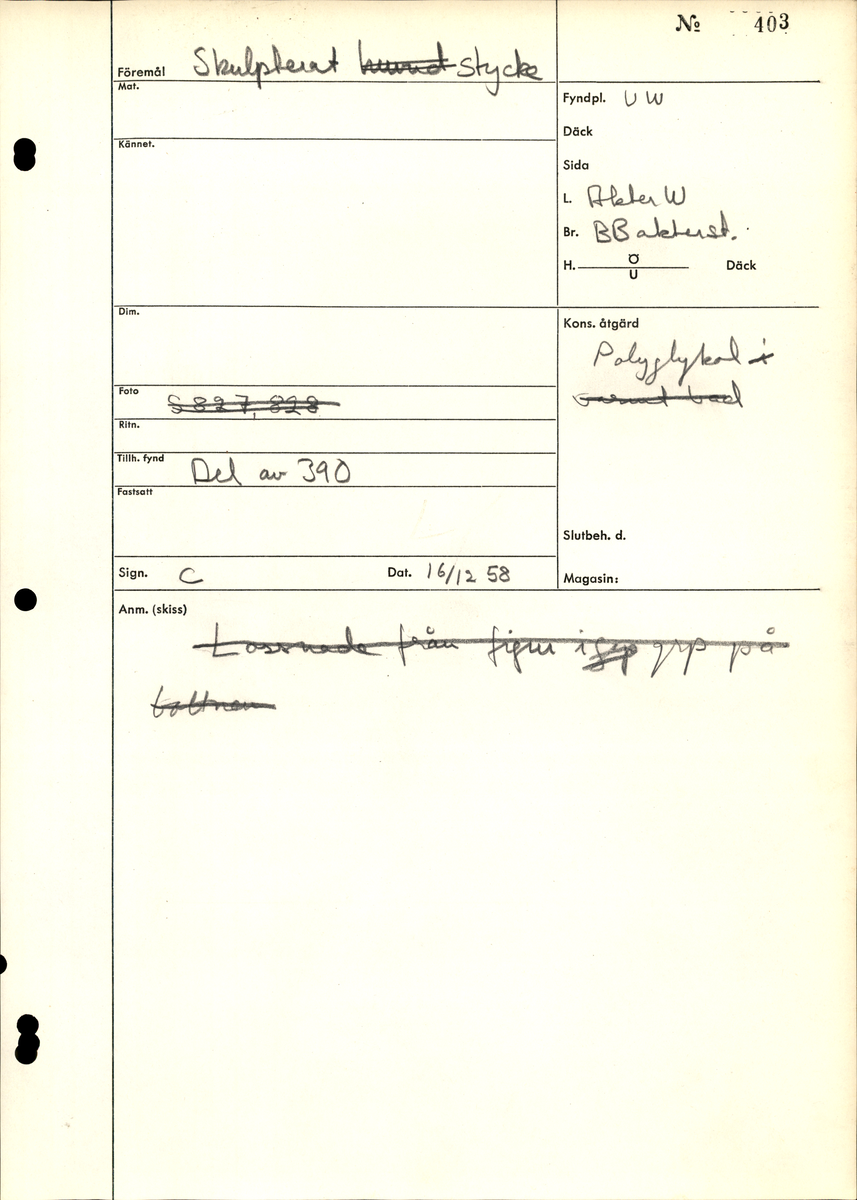 № 403
Föremål Skulpterat hund stycke
Mat.
Kännet.
Fyndpl. U W
Däck
Sida
L. Akter W
Br. BB akterst.
H. Ö U Däck
Dim.
Kons. åtgärd
Polyglykol i
varmt bad
Foto S 827, 828
Ritn.
Tillh. fynd Del av 390
Fastsatt
Slutbeh. d.
Sign. C Dat. 16/12 58
Magasin:
Anm. (skiss)
Lossnade från figur i grp på
bottnen